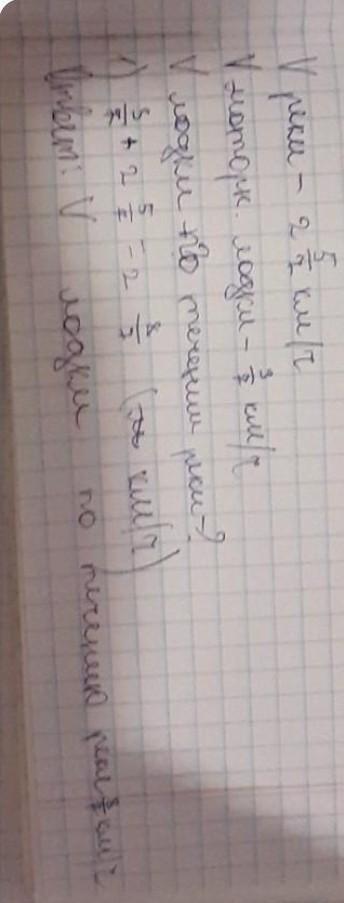 V реки – 2 5/7 км/ч
V моторн. лодки – 3/7 км/ч
V лодки по течении реки – ?
1) 3/7 + 2 5/7 = 2 8/7 (км/ч)
Ответ: V лодки по течению реки 2 8/7 км/ч